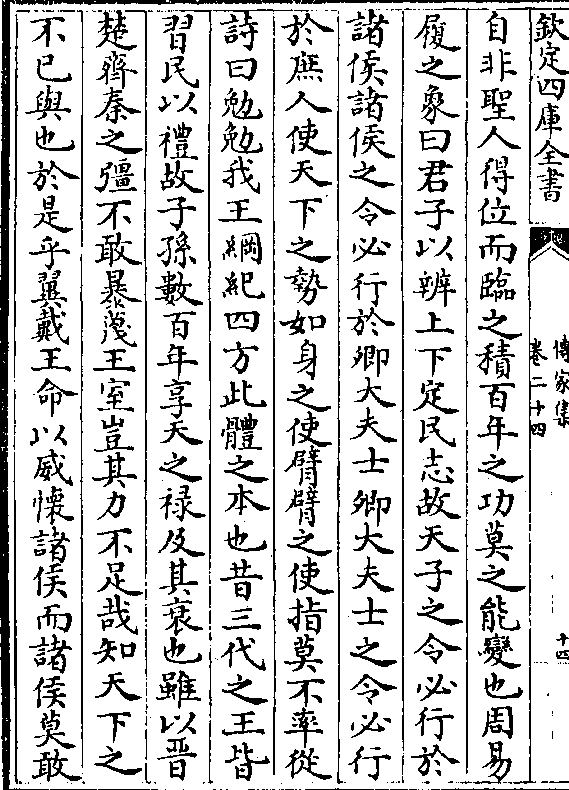 欽定四庫全書
傳家集
卷二十四
十四
自非聖人得位而臨之積百年之功莫之能變也周易
履之象曰君子以辨上下定民志故天子之令必行於
諸侯諸侯之令必行於卿大夫士卿大夫士之令必行
於庶人使天下之勢如身之使臂臂之使指莫不率從
詩曰勉勉我王綱紀四方此體之本也昔三代之王皆
習民以禮故子孫數百年享天之禄及其衰也雖以晋
楚齊秦之彊不敢暴蔑王室豈其力不足哉知天下之
不已與也於是乎翼戴王命以威懷諸侯而諸侯莫敢